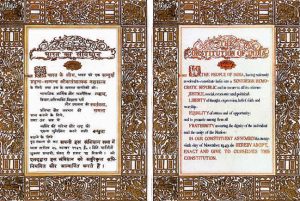 भारत का संविधान
भारत के लोग, भारत को एक सम्पूर्ण
के लिए, तथा उसके समस्त नागरिकों को
सामाजिक, आर्थिक और राजनैतिक न्याय,
विचार, अभिव्यक्ति, विश्वास, धर्म
और उपासना की स्वतंत्रता,
प्रतिष्ठा और अवसर की समता
प्राप्त कराने के लिए,
तथा उन सब में
बढ़ाने के लिए
अपनी इस संविधान सभा में
एतद्द्वारा इस संविधान को अंगीकृत,
अधिनियमित और आत्मार्पित करते हैं।
WE, THE PEOPLE OF INDIA, having solemnly
resolved to constitute India into a SOVEREIGN DEMO-
CRATIC REPUBLIC and to secure to all its citizens:
JUSTICE, social, economic and political;
LIBERTY of thought, expression, belief, faith and
worship;
EQUALITY of status and of opportunity;
and to promote among them all
FRATERNITY assuring the dignity of the individual
and the unity of the Nation;
IN OUR CONSTITUENT ASSEMBLY this
twenty-sixth day of November 1949, do HEREBY ADOPT,
ENACT AND GIVE TO OURSELVES THIS
CONSTITUTION.